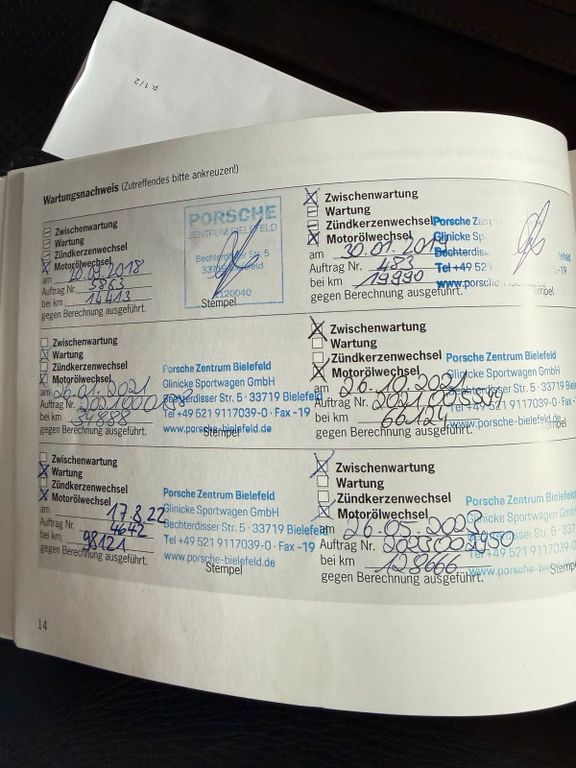 P. 1/2
Wartungsnachweis (Zutreffendes bitte ankreuzen!)
Zwischenwartung
Wartung
Zündkerzenwechsel
Motorölwechsel
am 20.09.2018
Auftrag Nr. 5863
bei km 14413
gegen Berechnung ausgeführt.
PORSCHE
ZENTRUM BIELEFELD
Bechterdisser Str. 5
33719 Bielefeld
2120040
Stempel
Zwischenwartung
Wartung
Zündkerzenwechsel
Motorölwechsel
am 30.01.2019
Auftrag Nr. 483
bei km 19990
gegen Berechnung ausgeführt.
Porsche
Glinicke
Bechterdis
Tel +49 521
www.porsche
Stempel
Zwischenwartung
Wartung
Zündkerzenwechsel
Motorölwechsel
am 26.01.2021
Auftrag Nr.
bei km
gegen Berechnung ausgeführt.
Porsche Zentrum Bielefeld
Glinicke Sportwagen GmbH
Bechterdisser Str. 5 · 33719 Bielefeld
Tel +49 521 9117039-0 · Fax -19
www.porsche-bielefeld.de
Stempel
Zwischenwartung
Wartung
Zündkerzenwechsel
Motorölwechsel
am 26.10.2021
Auftrag Nr.
bei km 66124
gegen Berechnung ausgeführt.
Porsche Zentrum Bielefeld
Glinicke Sportwagen GmbH
Bechterdisser Str. 5 · 33719 Bielef
Tel +49 521 9117039-0 · Fax -19
www.porsche-bielefeld.de
Stempel
Zwischenwartung
Wartung
Zündkerzenwechsel
Motorölwechsel
am 17.8.22
Auftrag Nr. 4642
bei km 98121
gegen Berechnung ausgeführt.
Porsche Zentrum Bielefeld
Glinicke Sportwagen GmbH
Bechterdisser Str. 5 · 33719 Bielefeld
Tel +49 521 9117039-0 · Fax -19
www.porsche-bielefeld.de
Stempel
Zwischenwartung
Wartung
Zündkerzenwechsel
Motorölwechsel
am 26.05.2023
Auftrag Nr.
bei km 128666
gegen Berechnung ausgeführt.
Porsche Zentrum Bielefe
Glinicke Sportwagen Gm
Bechterdisser Str. 5 · 33719
Tel +49 521 9117039-0
www.porsche-bielefeld
Stempel
14